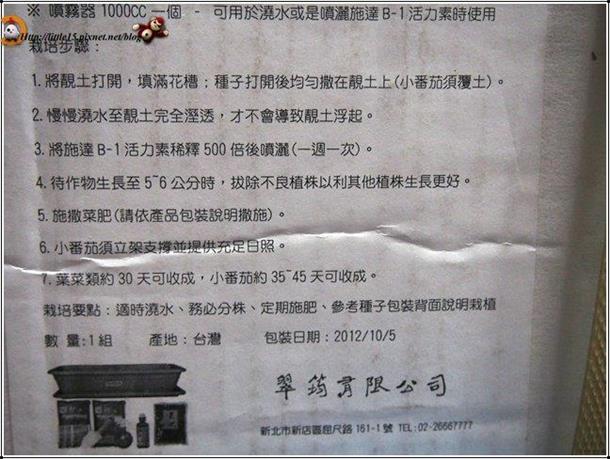 ※ 噴霧器 1000CC 一個 - 可用於澆水或是噴灑施達 B-1 活力素時使用
Http://little15.pixnet.net/blog
栽培步驟：
1. 將靚土打開，填滿花槽；種子打開後均勻撒在靚土上(小番茄須覆土)。
2. 慢慢澆水至靚土完全溼透，才不會導致靚土浮起。
3. 將施達 B-1 活力素稀釋 500 倍後噴灑(一週一次)。
4. 待作物生長至 5~6 公分時，拔除不良植株以利其他植株生長更好。
5. 施撒菜肥(請依產品包裝說明撒施)。
6. 小番茄須立架支撐並提供充足日照。
7. 葉菜類約 30 天可收成，小番茄約 35~45 天可收成。
栽培要點：適時澆水、務必分株、定期施肥、參考種子包裝背面說明栽植
數 量:1 組 產地：台灣 包裝日期：2012/10/5
翠筠有限公司
新北市新店區屈尺路 161-1 號 TEL:02-26667777